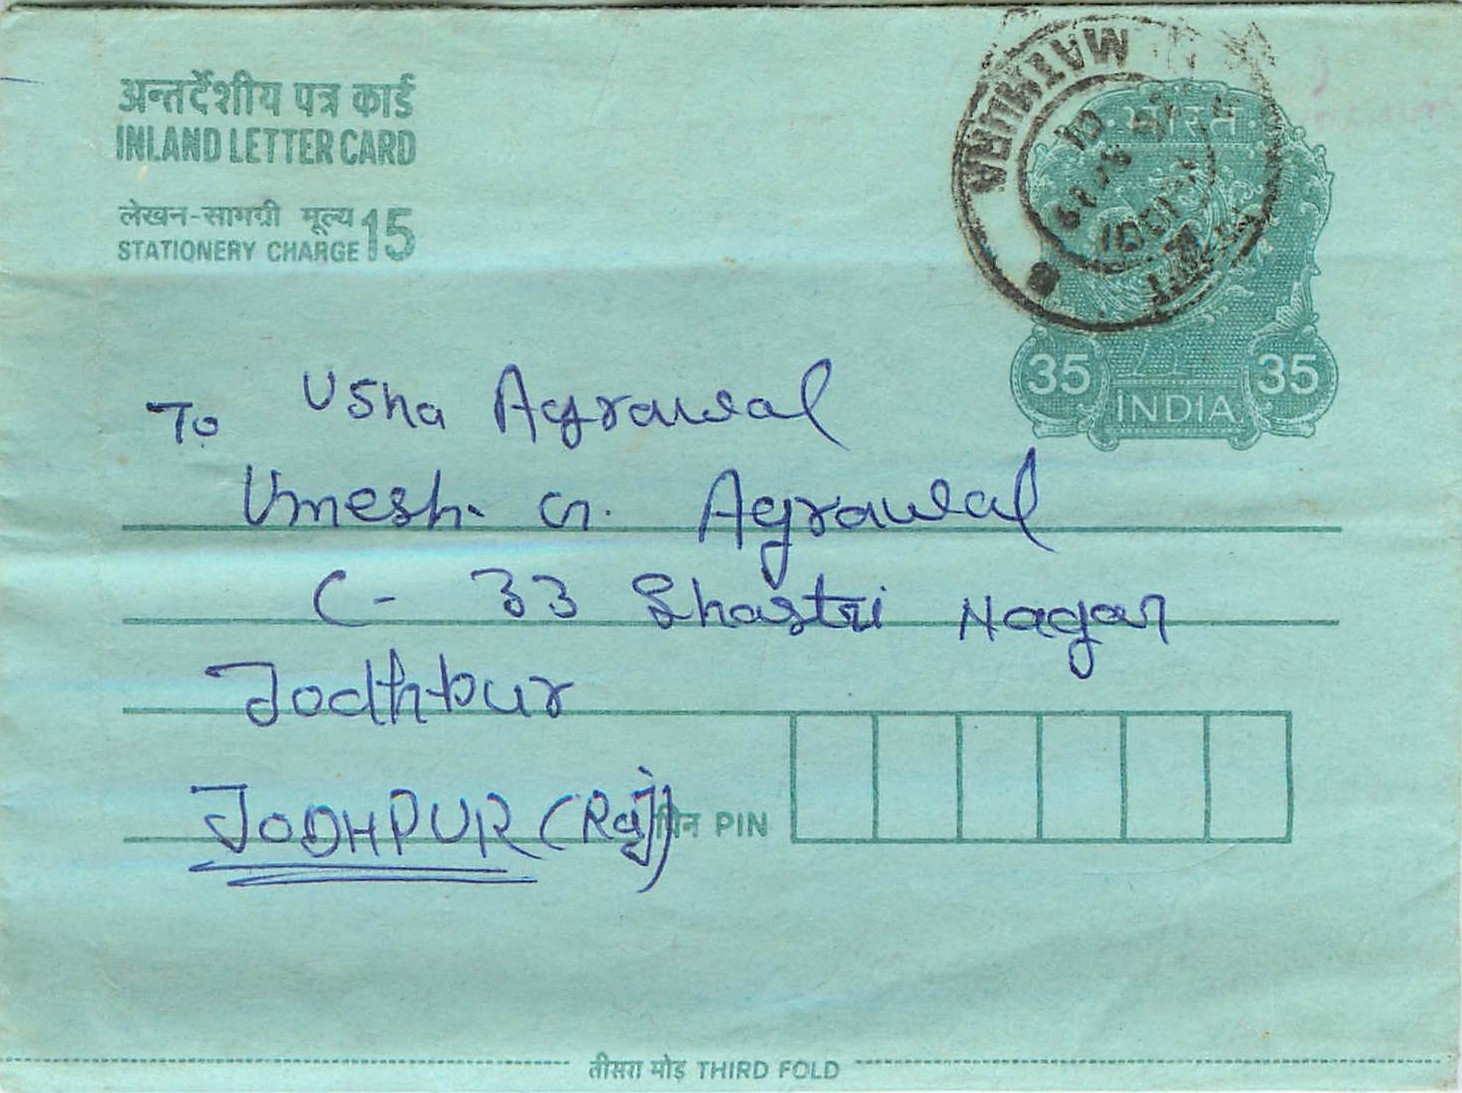 अन्तर्देशीय पत्र कार्ड
INLAND LETTER CARD
लेखन-सामग्री मूल्य 15
STATIONERY CHARGE
MATHURA
·भारत·
35 35
INDIA
To Usha Agrawal
Umesh Cn. Agrawal
C- 33 Shastri Nagar
Jodhpur
JODHPUR (Raj)
पिन PIN
तीसरा मोड़ THIRD FOLD